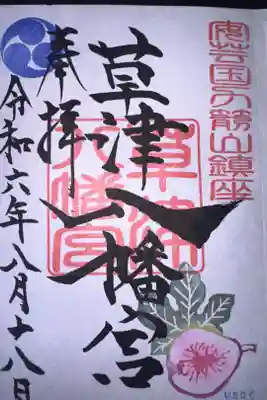 安芸国力箭山鎮座
草津八幡宮
草津
八幡宮
奉拝
令和六年八月十八日
いちじく